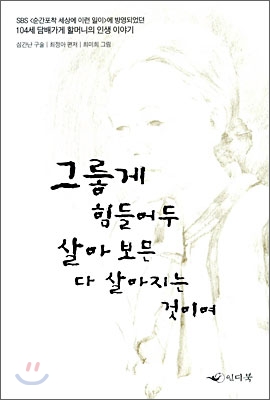 SBS <순간포착 세상에 이런 일이>에 방영되었던
104세 담배가게 할머니의 인생 이야기
심간난 구술 | 최정아 편저 | 최미희 그림
그룧게
힘들어두
살아 보믄
다 살아지는
것이여
인디북
YES24